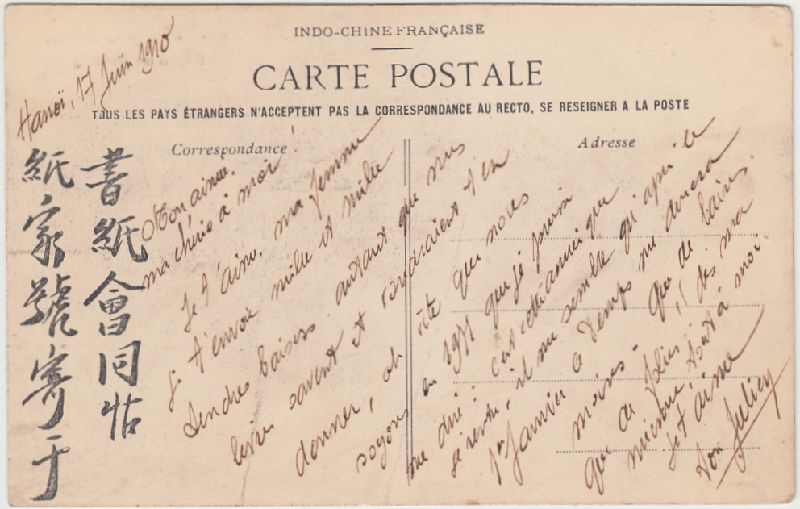 INDO-CHINE FRANÇAISE
CARTE POSTALE
TOUS LES PAYS ÉTRANGERS N'ACCEPTENT PAS LA CORRESPONDANCE AU RECTO, SE RESEIGNER A LA POSTE
Correspondance
Adresse
Hanoï, 17 Juin 1910
書紙會同帖
紙家號寄于
Mon aimée,
ma chérie à moi!
Je t'aime, ma femme
Je t'envoie mille et mille
tendres baisers autant que nos
lèvres savent et voudraient t'en
donner, oh vite que nous
soyons en 1911 que je puisse
me dire: c'est cette année que
je rentre, il me semble qu'après le
1er Janvier le temps me durera
moins. Que de baisers
que ce pli
mienne, tout à moi.
Je t'aime
Ton Julien